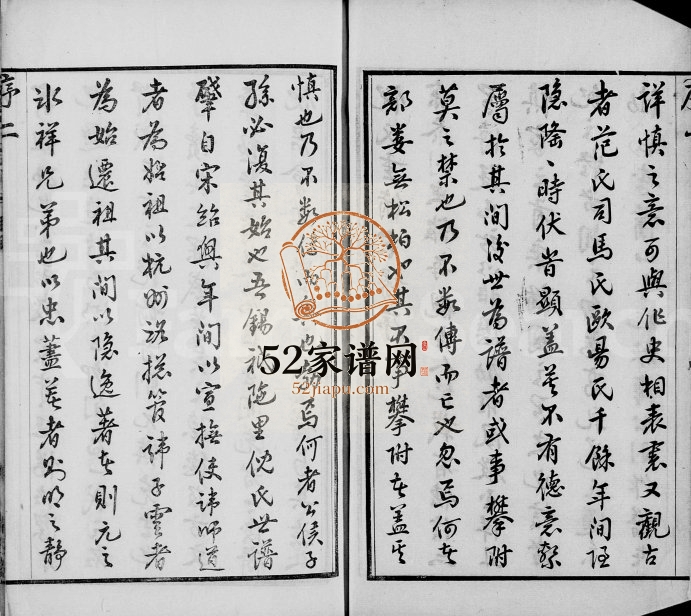 詳慎之意可與作史相表裏又觀古
者范氏司馬氏歐昜氏千餘年間經
隐隆、時伏昔顯蓋莫不有德意繫
屬於其間後世為譜者或事攀附
莫之禁也乃不數傳而亡也忽焉何者
部婁無松柏也其不事攀附者蓋其
慎也乃不數傳而也焉何者公侯子
孫必復其始也吾錫祇陁里倪氏世譜
肇自宋紹興年間以宣撫使諱師道
者為始祖以杭州諮捴管諱子雲者
為始遷祖其間以隐逸著者則元之
冰祥兄弟也以忠藎著者則明之靜
序二
52家谱网
52jiapu.com